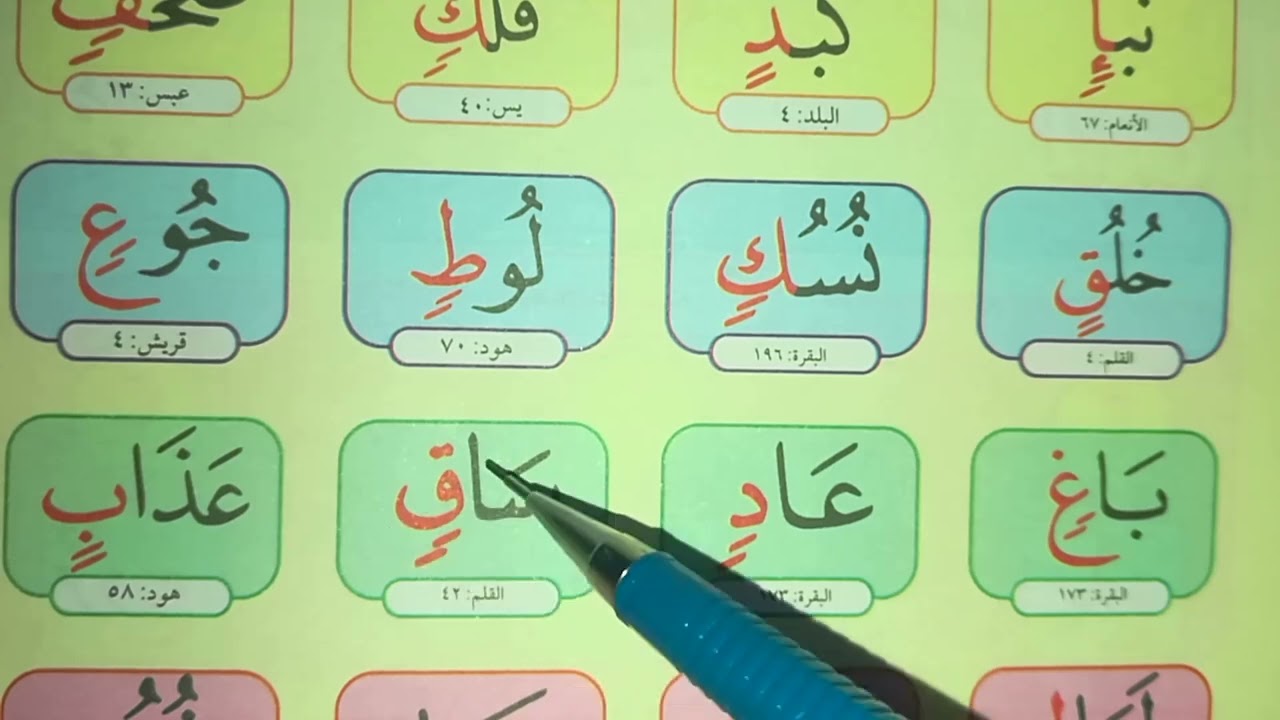 نَبَإٍ كَبَدٍ فَلَكٍ
الأنعام: ٦٧ البلد: ٤ يس: ٤٠ عبس: ١٣
خُلُقٍ نُسُكٍ لُوطٍ جُوعٍ
القلم: ٤ البقرة: ١٩٦ هود: ٧٠ قريش: ٤
بَاغٍ عَادٍ سَاقٍ عَذَابٍ
البقرة: ١٧٣ البقرة: ١٧٣ القلم: ٤٢ هود: ٥٨